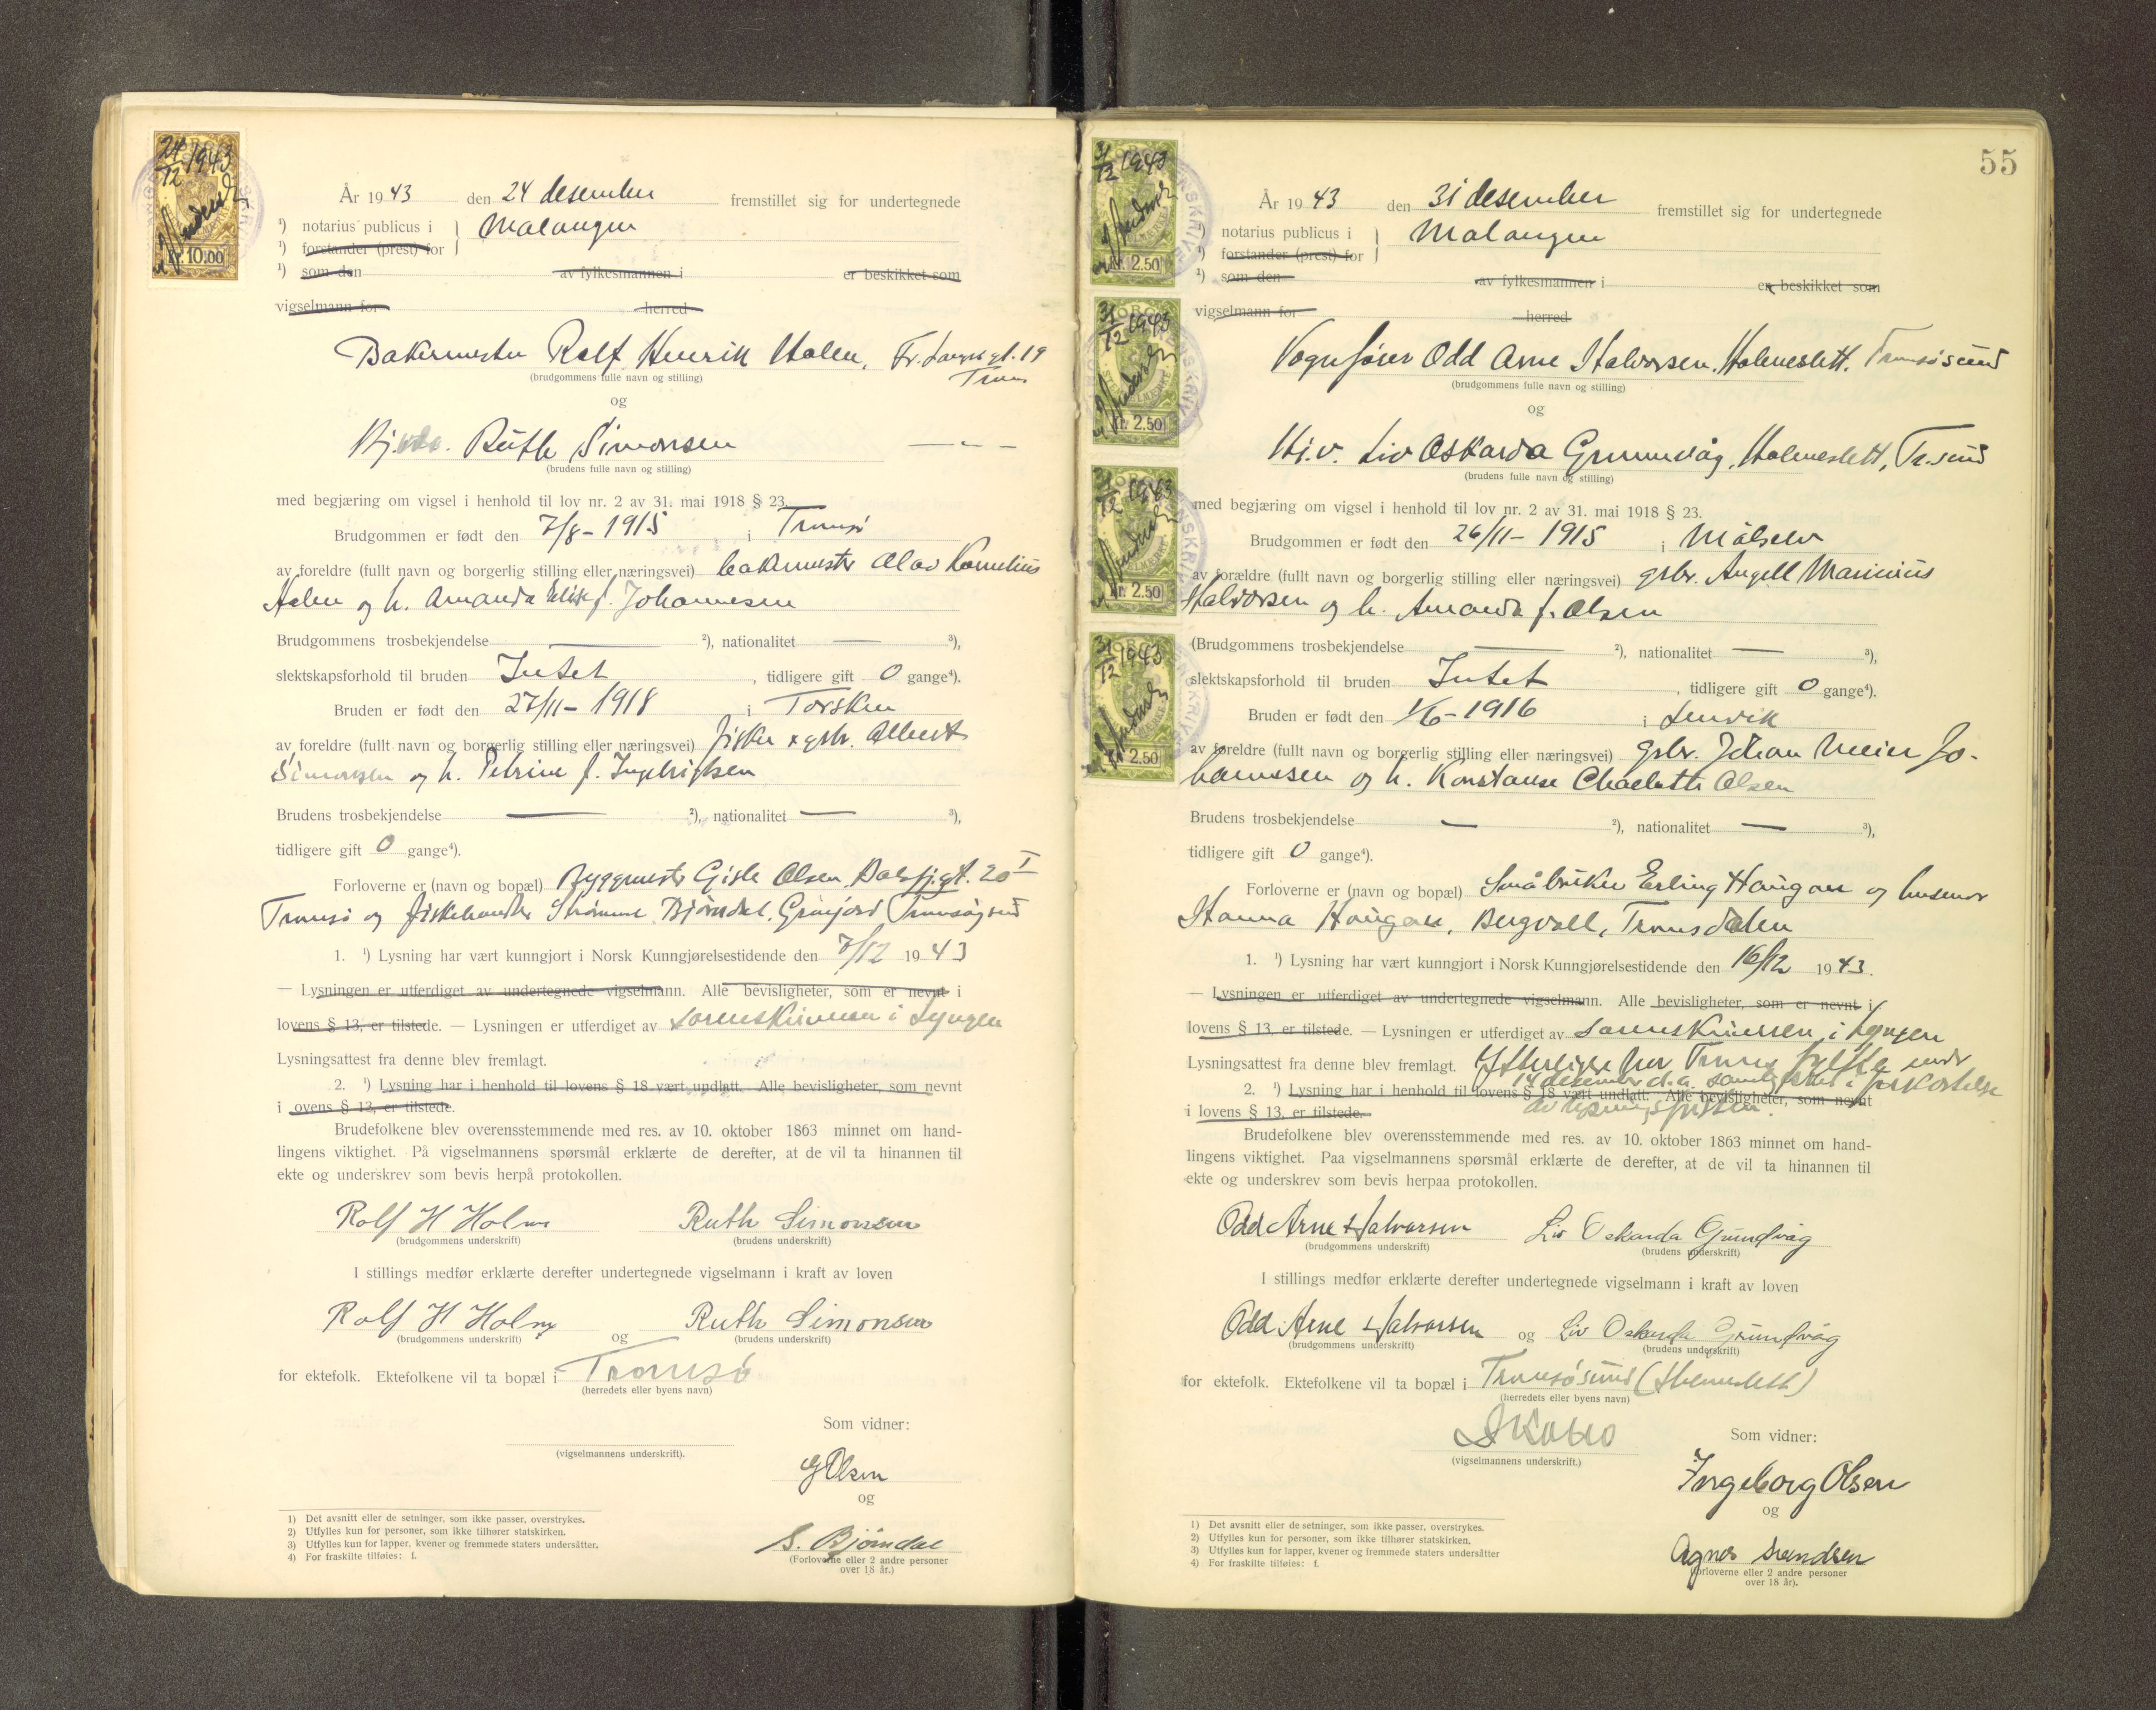 24/12 1943
kr. 10.00
År 1943 den 24 desember fremstillet sig for undertegnede
¹) notarius publicus i Malangen
¹) forstander (prest) for
¹) som den av fylkesmannen i er beskikket som
vigselmann for herred
Bakermester Rolf Henrik Holm, Fr. Langes gt. 19
Troms
(brudgommens fulle navn og stilling)
og
Ruth Simonsen
(brudens fulle navn og stilling)
med begjæring om vigsel i henhold til lov nr. 2 av 31. mai 1918 § 23.
Brudgommen er født den 7/8 - 1915 i Tromsø
av foreldre (fullt navn og borgerlig stilling eller næringsvei) bakermester Olav Kornelius
Holm og h. Amanda Elise f. Johannesen
Brudgommens trosbekjendelse — ²), nationalitet — ³),
slektskapsforhold til bruden Intet, tidligere gift 0 gange⁴).
Bruden er født den 27/11 - 1918 i Torsken
av foreldre (fullt navn og borgerlig stilling eller næringsvei) fisker x gbr. Albert
Simonsen og h. Petrine f. Ingebrigtsen
Brudens trosbekjendelse — ²), nationalitet — ³),
tidligere gift 0 gange⁴).
Forloverne er (navn og bopæl) Byggmester Gisle Olsen, Balsfj.gt. 20 I
Tromsø og fiskehandler Bjørndal, Tromsøysund
1. ¹) Lysning har vært kunngjort i Norsk Kunngjørelsestidende den 7/12 1943
— Lysningen er utferdiget av undertegnede vigselmann. Alle bevisligheter, som er nevnt i
lovens § 13, er tilstede. — Lysningen er utferdiget av sorenskriveren i Lyngen
Lysningsattest fra denne blev fremlagt.
2. ¹) Lysning har i henhold til lovens § 18 vært undlatt. Alle bevisligheter, som nevnt
i ovens § 13, er tilstede.
Brudefolkene blev overensstemmende med res. av 10. oktober 1863 minnet om hand-
lingens viktighet. På vigselmannens spørsmål erklærte de derefter, at de vil ta hinannen til
ekte og underskrev som bevis herpå protokollen.
Rolf H Holm Ruth Simonsen
(brudgommens underskrift) (brudens underskrift)
I stillings medfør erklærte derefter undertegnede vigselmann i kraft av loven
Rolf H Holm og Ruth Simonsen
(brudgommens underskrift) (brudens underskrift)
for ektefolk. Ektefolkene vil ta bopæl i Tromsø
(herredets eller byens navn)
Som vidner:
(vigselmannens underskrift).
G Olsen
og
S. Bjørndal
(Forloverne eller 2 andre personer
over 18 år.)
1) Det avsnitt eller de setninger, som ikke passer, overstrykes.
2) Utfylles kun for personer, som ikke tilhører statskirken.
3) Utfylles kun for lapper, kvener og fremmede staters undersåtter.
4) For fraskilte tilføies: f.
55
31/12 1943
kr. 2.50
31/12 1943
kr. 2.50
31/12 1943
kr. 2.50
31/12 1943
kr. 2.50
År 1943 den 31 desember fremstillet sig for undertegnede
¹) notarius publicus i Malangen
¹) forstander (prest) for
¹) som den av fylkesmannen i er beskikket som
vigselmann for herred
Vognfører Odd Arne Halvorsen, Holmeslett, Tromsøsund
(brudgommens fulle navn og stilling)
og
Hj.v. Liv Oskarda Grunnvåg, Holmeslett, Tr.sund
(brudens fulle navn og stilling)
med begjæring om vigsel i henhold til lov nr. 2 av 31. mai 1918 § 23.
Brudgommen er født den 26/11 - 1915 i Målselv
av forældre (fullt navn og borgerlig stilling eller næringsvei) gbr. Angell Marinius
Halvorsen og h. Amanda f. Olsen
(Brudgommens trosbekjendelse — ²), nationalitet — ³),
slektskapsforhold til bruden Intet, tidligere gift 0 gange⁴).
Bruden er født den 1/6 - 1916 i Lenvik
av foreldre (fullt navn og borgerlig stilling eller næringsvei) gbr. Johan Meier Jo-
hannesen og h. Konstanse Charlotte Olsen
Brudens trosbekjendelse — ²), nationalitet — ³),
tidligere gift 0 gange⁴).
Forloverne er (navn og bopæl) Småbruker Erling Haugan og husmor
Hanna Haugan, Bergvoll, Tromsdalen
1. ¹) Lysning har vært kunngjort i Norsk Kunngjørelsestidende den 16/12 1943.
— Lysningen er utferdiget av undertegnede vigselmann. Alle bevisligheter, som er nevnt i
lovens § 13, er tilstede. — Lysningen er utferdiget av sorenskriveren i Lyngen
Lysningsattest fra denne blev fremlagt. Ytterligere har Troms fylke under
14 desember d.a. samtykket i forkortelse
2. ¹) Lysning har i henhold til lovens § 18 vært undlatt. Alle bevisligheter, som nevnt
av lysningsfristen.
i lovens § 13, er tilstede.
Brudefolkene blev overensstemmende med res. av 10. oktober 1863 minnet om hand-
lingens viktighet. Paa vigselmannens spørsmål erklærte de derefter, at de vil ta hinannen til
ekte og underskrev som bevis herpaa protokollen.
Odd Arne Halvorsen Liv Oskarda Grundvåg
(brudgommens underskrift) (brudens underskrift)
I stillings medfør erklærte derefter undertegnede vigselmann i kraft av loven
Odd Arne Halvorsen og Liv Oskarda Grundvåg
(brudgommens underskrift) (brudens underskrift)
for ektefolk. Ektefolkene vil ta bopæl i Tromsøsund (Holmeslett)
(herredets eller byens navn)
Som vidner:
(vigselmannens underskrift.)
Ingeborg Olsen
og
Agnes Svendsen
(Forloverne eller 2 andre personer
over 18 år).
1) Det avsnitt eller de setninger, som ikke passer, overstrykes.
2) Utfylles kun for personer, som ikke tilhører statskirken.
3) Utfylles kun for lapper, kvener og fremmede staters undersåtter
4) For fraskilte tilføies: f.